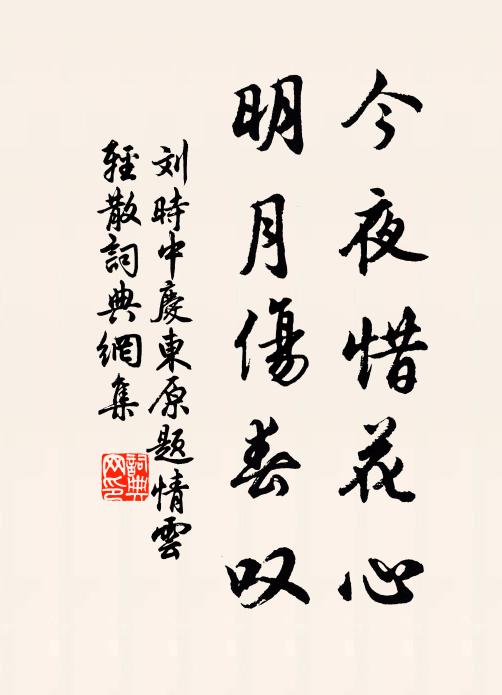 今夜惜花心
明月傷春叹
刘時中慶東原题情雲
輕散詞典網集
詞典网印